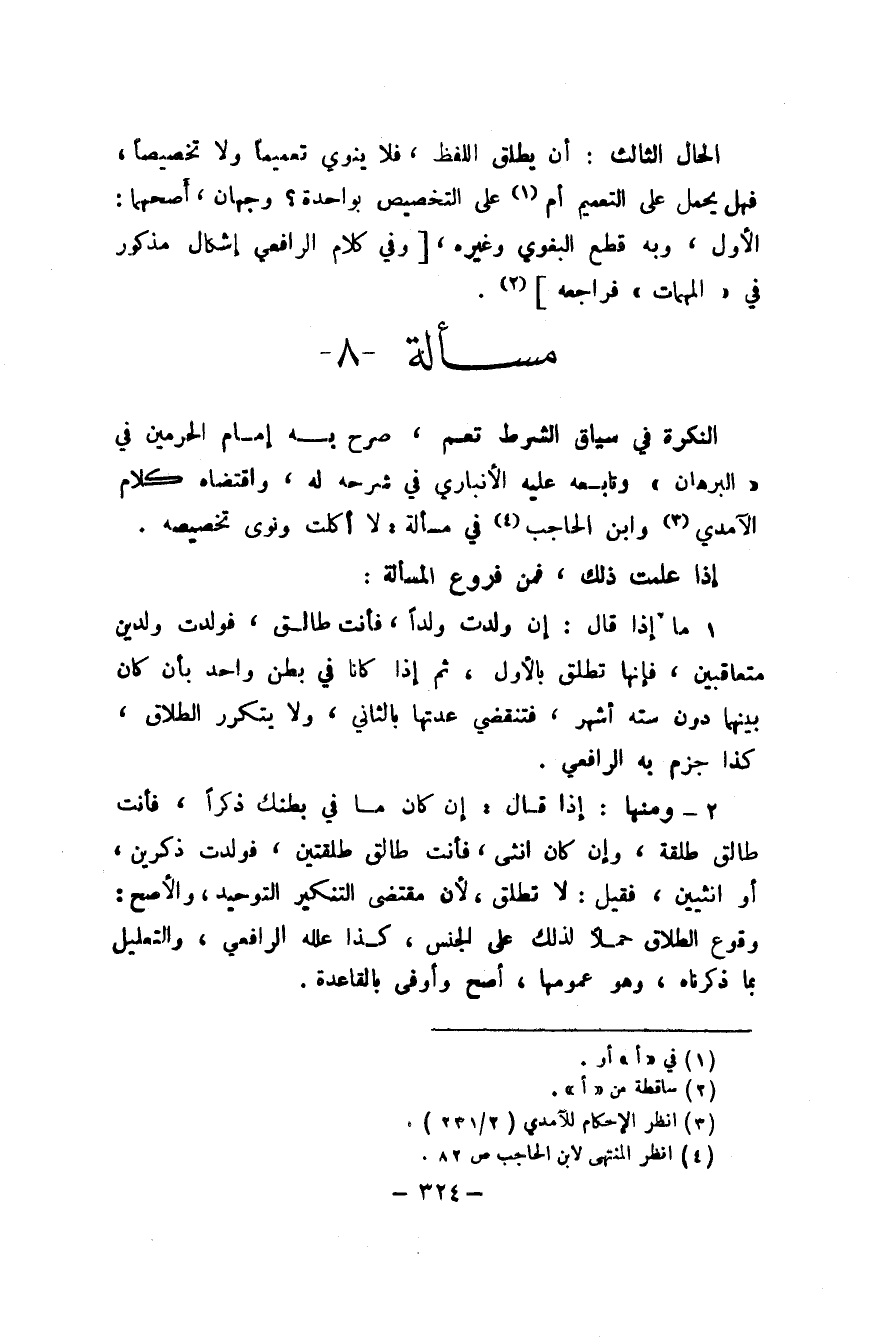 الحال الثالث : أن يطلق اللفظ ، فلا ينوي تعميماً ولا تخصيصاً ،
فهل يحمل على التعميم أم (١) على التخصيص بواحدة ؟ وجهان ، أصحهما :
الأول ، وبه قطع البغوي وغيره ، [ وفي كلام الرافعي إشكال مذكور
في « المهمات » فراجعه ] (٢) .
مسألة -٨-
النكرة في سياق الشرط تعم ، صرح به إمام الحرمين في
« البرهان » وتابعه عليه الأنباري في شرحه له ، واقتضاه كلام
الآمدي (٣) وابن الحاجب (٤) في مسألة : لا أكلت ونوى تخصيصه .
إذا علمت ذلك ، فمن فروع المسألة :
١ ما إذا قال : إن ولدت ولداً ، فأنت طالق ، فولدت ولدين
متعاقبين ، فإنها تطلق بالأول ، ثم إذا كانا في بطن واحد بأن كان
بينهما دون سته أشهر ، فتنقضي عدتها بالثاني ، ولا يتكرر الطلاق ،
كذا جزم به الرافعي .
٢ ـ ومنها : إذا قال : إن كان ما في بطنك ذكراً ، فأنت
طالق طلقة ، وإن كان انثى ، فأنت طالق طلقتين ، فولدت ذكرين ،
أو انثيين ، فقيل : لا تطلق ، لأن مقتضى التنكير التوحيد ، والأصح :
وقوع الطلاق حملاً لذلك على الجنس ، كذا علله الرافعي ، والتعليل
بما ذكرناه ، وهو عمومها ، أصح وأوفى بالقاعدة .
(١) في « أ » أو .
(٢) ساقطة من « أ » .
(٣) انظر الإحكام للآمدي ( ٢/٢٣١ ) .
(٤) انظر المنتهى لابن الحاجب ص ٨٢ .
– ٣٢٤ –